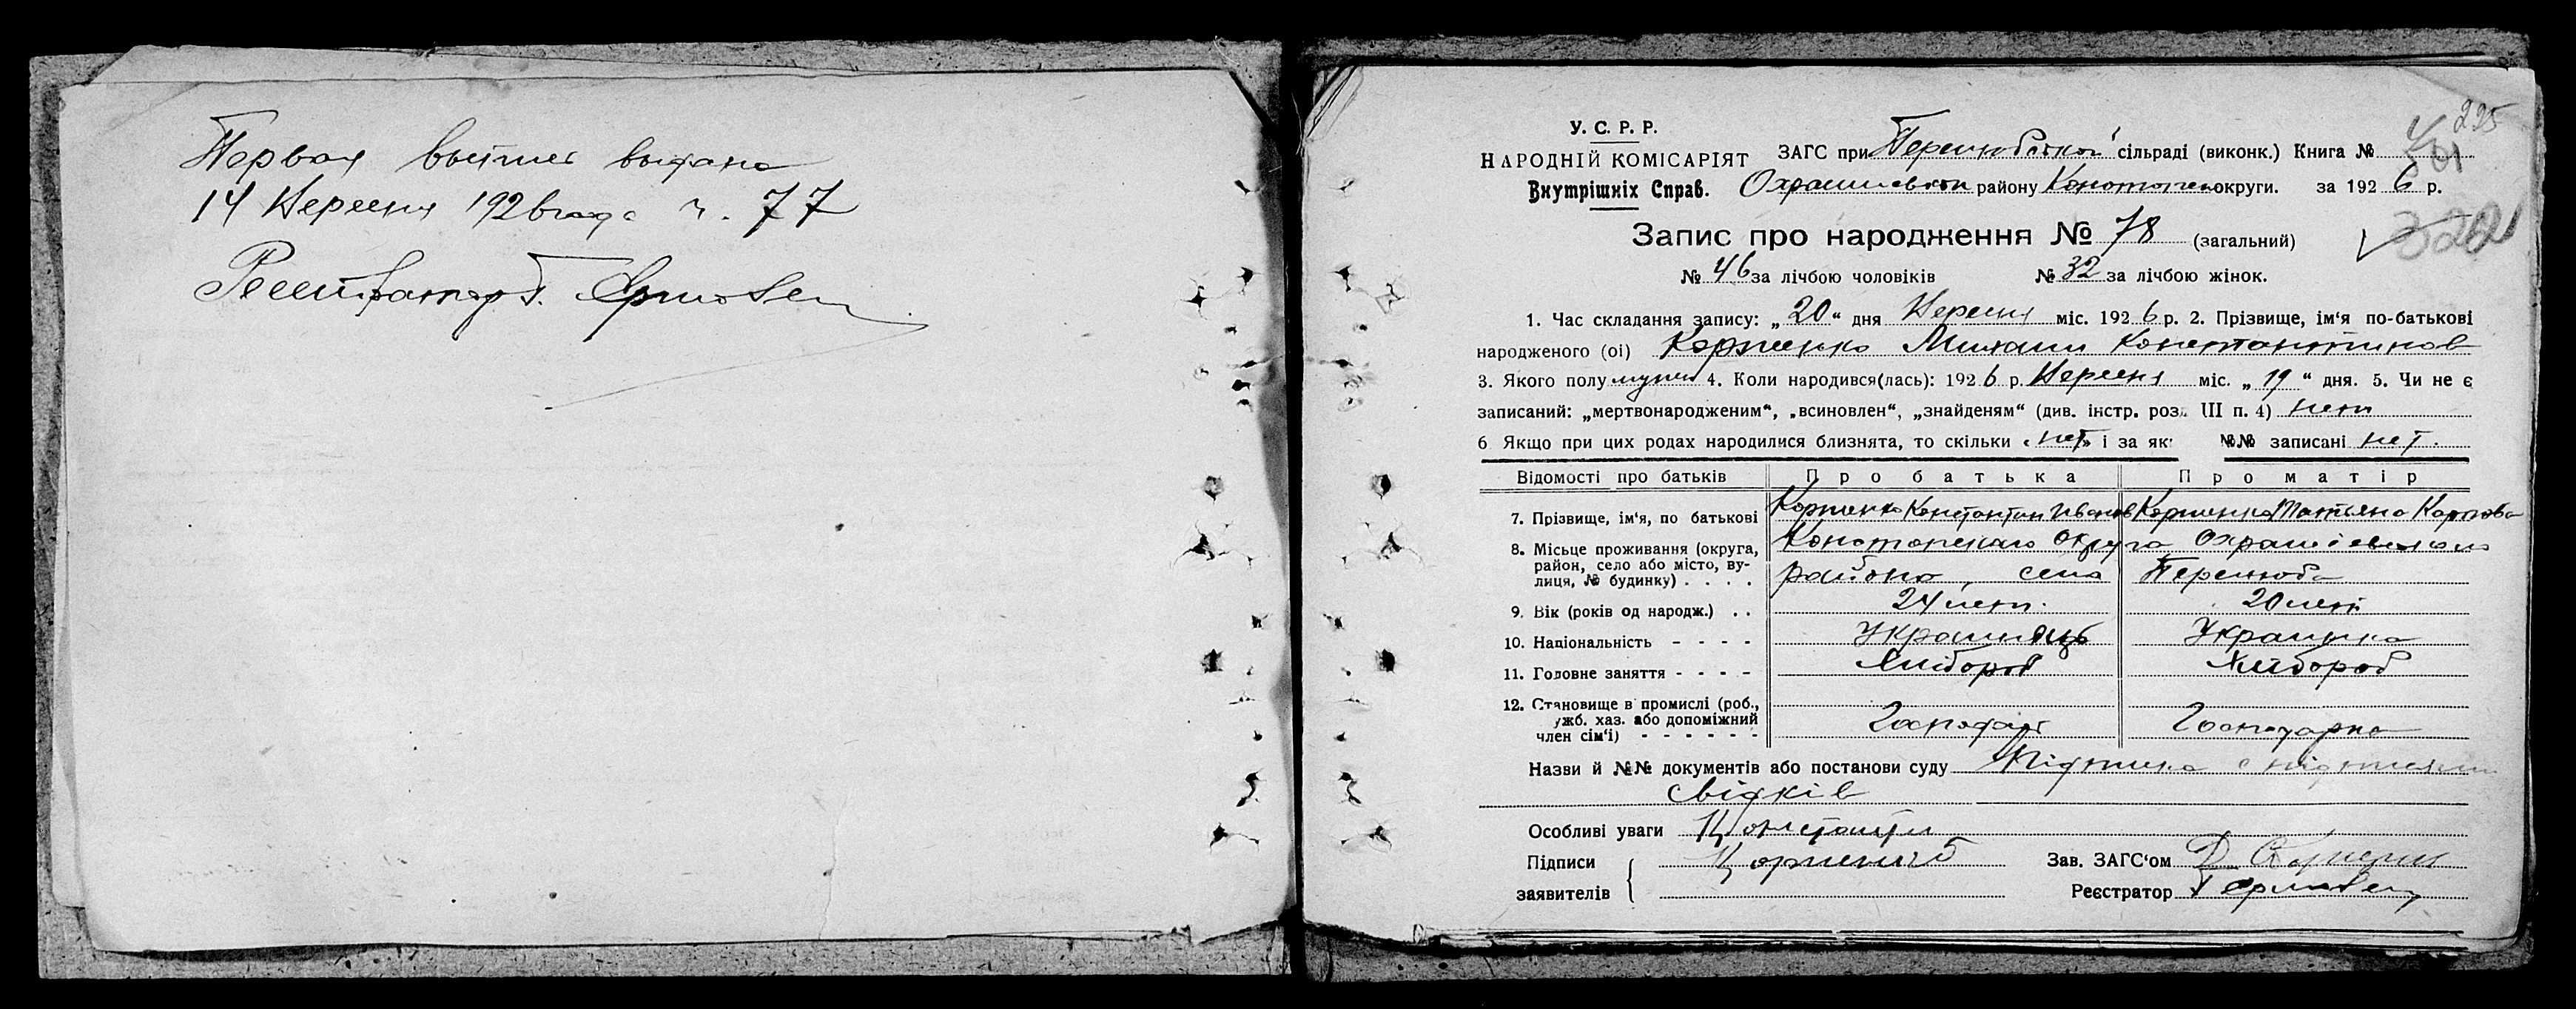 Первая выпись выдана
14 Вересня 1926 года ч. 77
Реестратор
235
У. С. Р. Р.
НАРОДНІЙ КОМІСАРІЯТ
Внутрішніх Справ.
ЗАГС при Перелюбской сільраді (виконк.) Книга №
району Конотопск округи. за 1926 р.
Запис про народження № 78 (загальний)
№ 46 за лічбою чоловіків № 32 за лічбою жінок.
1. Час складання запису: „20“ дня Вересня міс. 1926 р. 2. Прізвище, ім'я по-батькові
народженого (оі) Корниенко Михаил Константинов
3. Якого полу мужск 4. Коли народився(лась): 1926 р. Вересня міс. „19“ дня. 5. Чи не є
записаний: „мертвонародженим“, „всиновлен“, „знайденям“ (див. інстр. розд. III п. 4) нет
6 Якщо при цих родах народилися близнята, то скільки „нет“ і за які №№ записані нет.
Відомості про батьків Про батька Про матір
7. Прізвище, ім'я, по батькові Корниенко Константин Иванов Корниенко Татьяна Карпова
8. Місьце проживання (округа, Конотопскаго Округа
район, село або місто, ву- района, села Перелюба
лиця, № будинку) . . . .
9. Вік (років од народж.) . . 24 лет. 20 лет
10. Національність - - - - Украинець Украинка
11. Головне заняття - - - - Хлібороб Хлібороб
12. Становище в промислі (роб.,
служб. хаз. або допоміжний Господарь Господарка
член сім'ї) - - - - - -
Назви й №№ документів або постанови суду Підписка с підписями
свідків
Особливі уваги Константин
Підписи Зав. ЗАГС'ом
заявителів Реєстратор